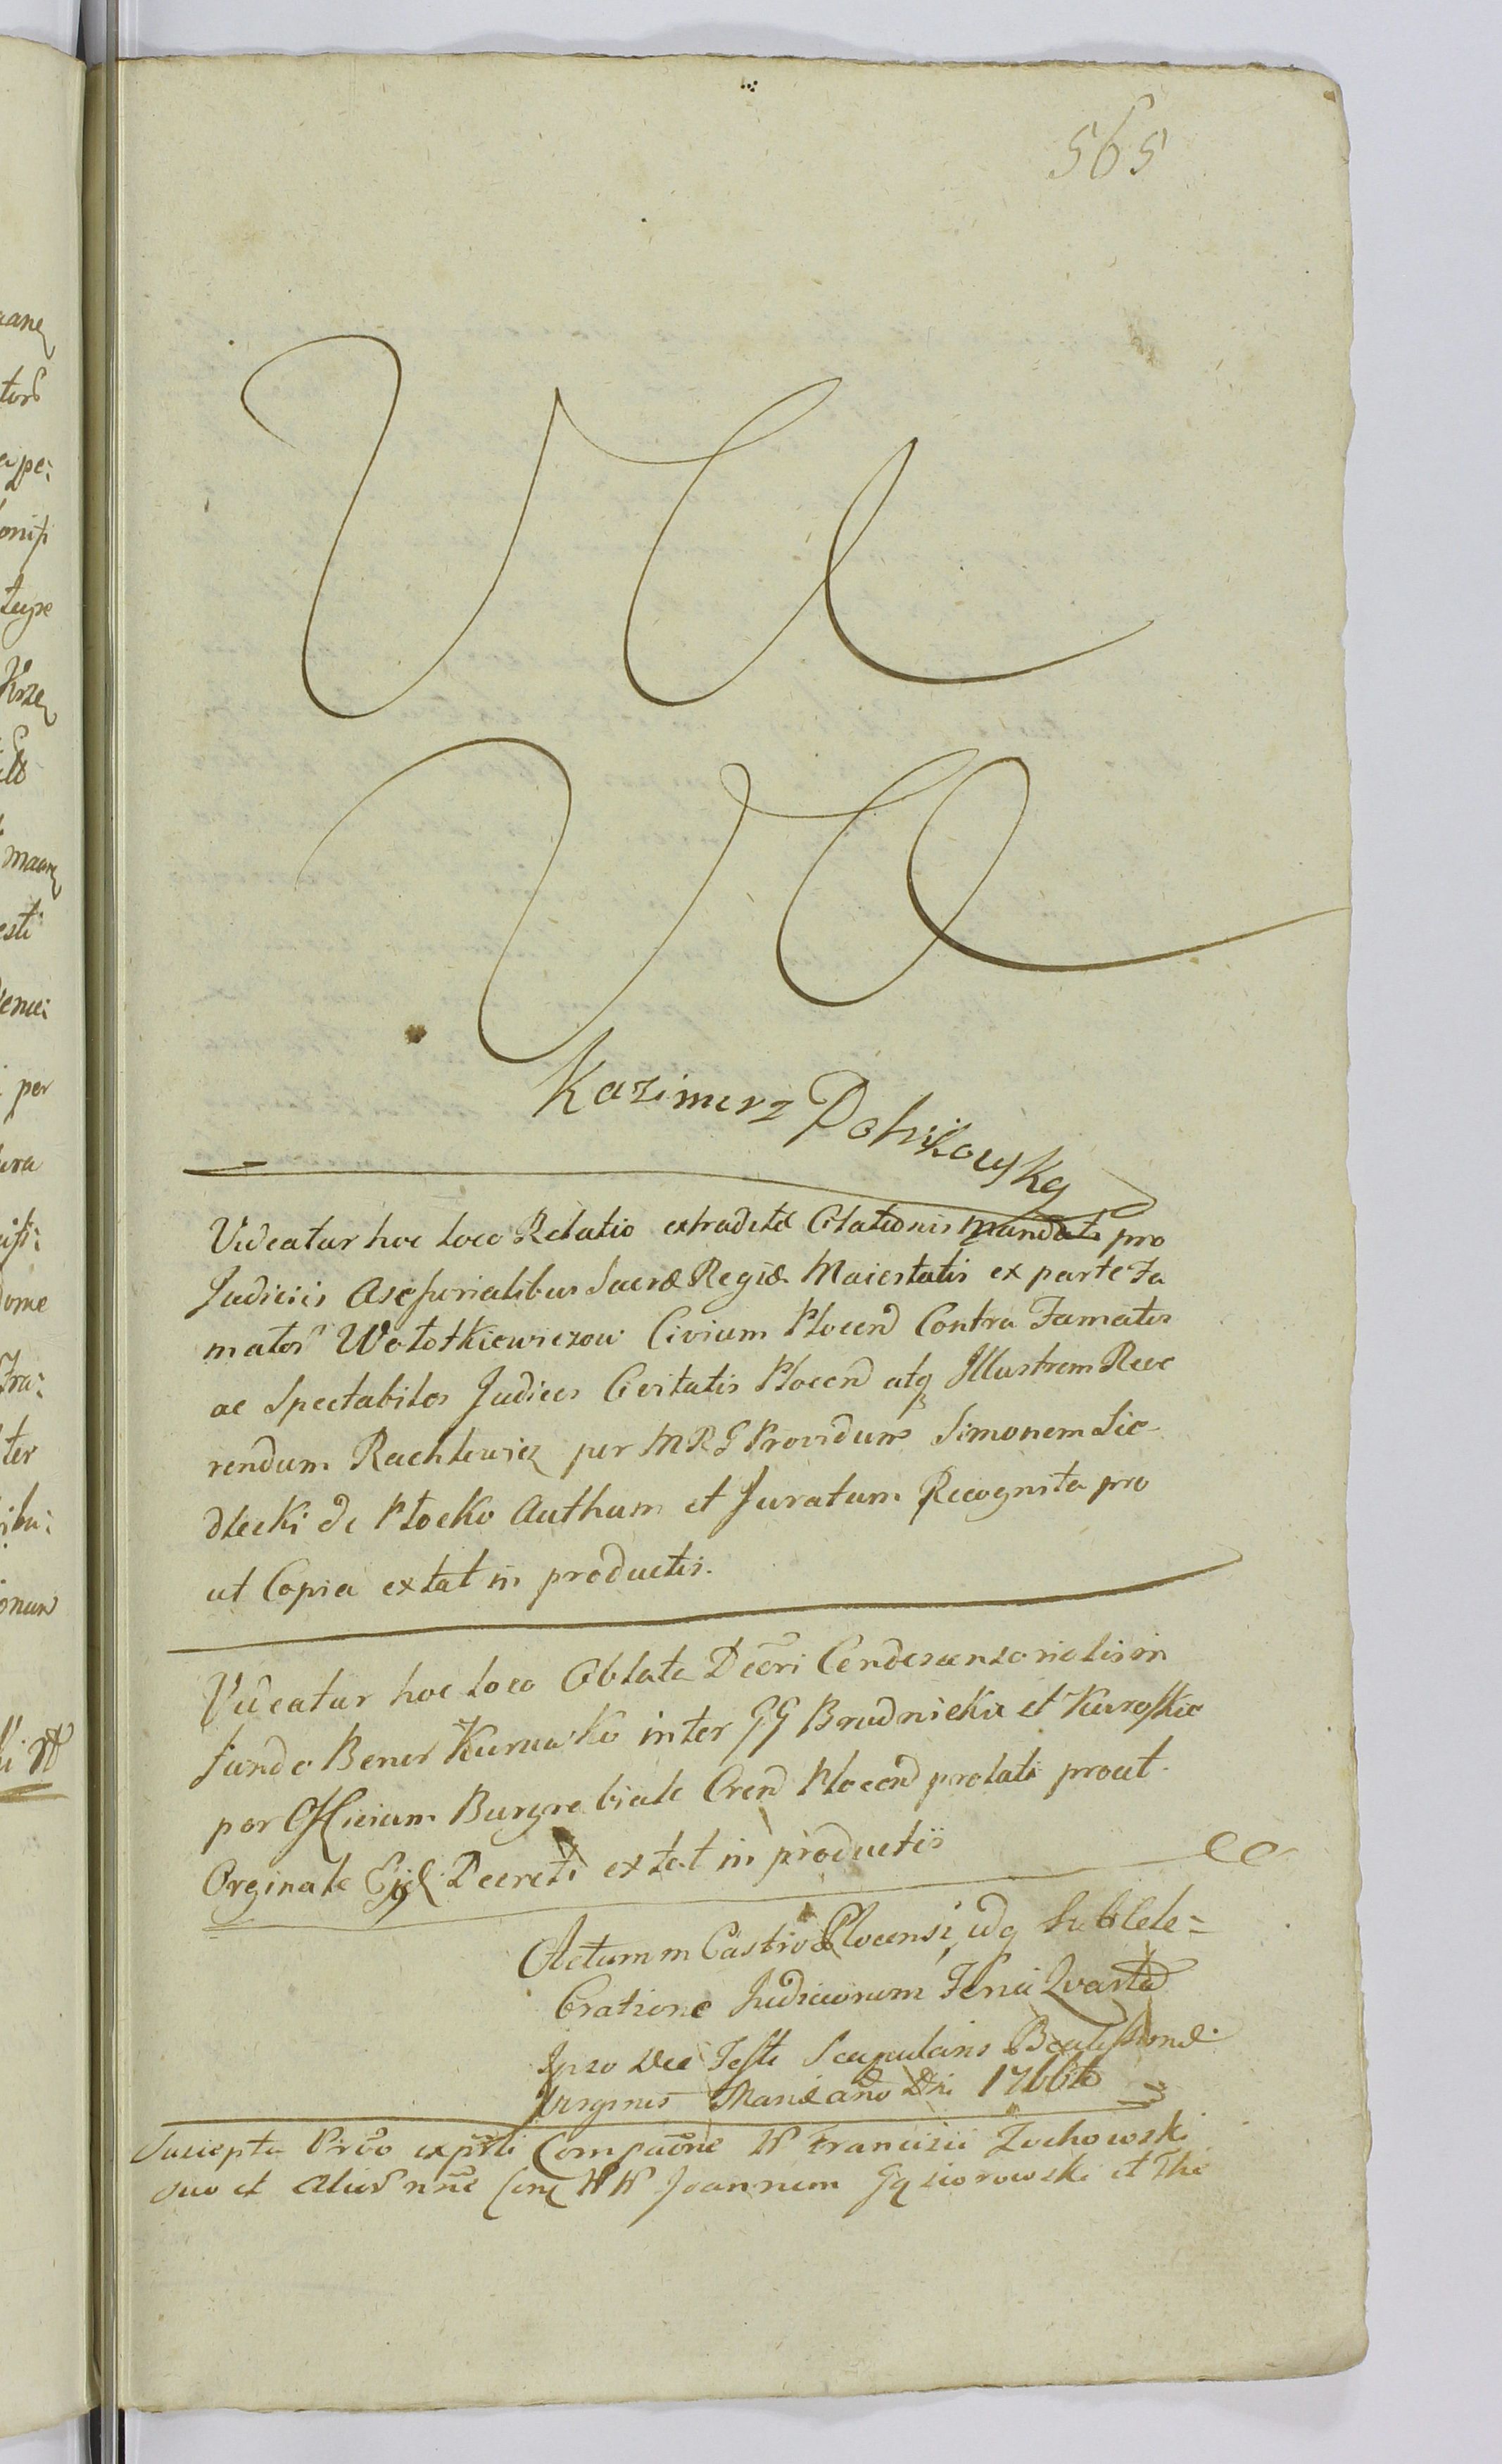 565
Va
Va
Kazimerz
Videatur hoc loco Relatio extraditæ Citationis Mandati pro
Judiciis Assessorialibus Sacræ Regiæ Maiestatis ex parte Fa
mator Wołotkiewiczow Civium Plocen Contra Famatos
ac Spectabiles Judices Civitatis Plocen atq Illustrem Reve
rendum Rachlewicz per MRG Providum Simonem Sie
dlecki de Płocko Authum et Juratum Recognita pro
ut Copia extat in productis.
Videatur hoc loco Oblata Decri Condescensorialis in
fundo Bonor Kurowko inter GG Brudnickie et Kuroskie
per Officium Burgrabiale Cren Plocen prolati prout
Orginale Decreti extat in productis
Actum in Castro Plocensi idq sub Cele=
bratione Judiciorum Feria Quarta
Ipso Die Festi Scapularis Beatissimæ
Virginis Mariæ año Dni 1766to
Suscepta Compaone W Francisci Zochowski
suo et WW Joannem Gąsiorowski et The